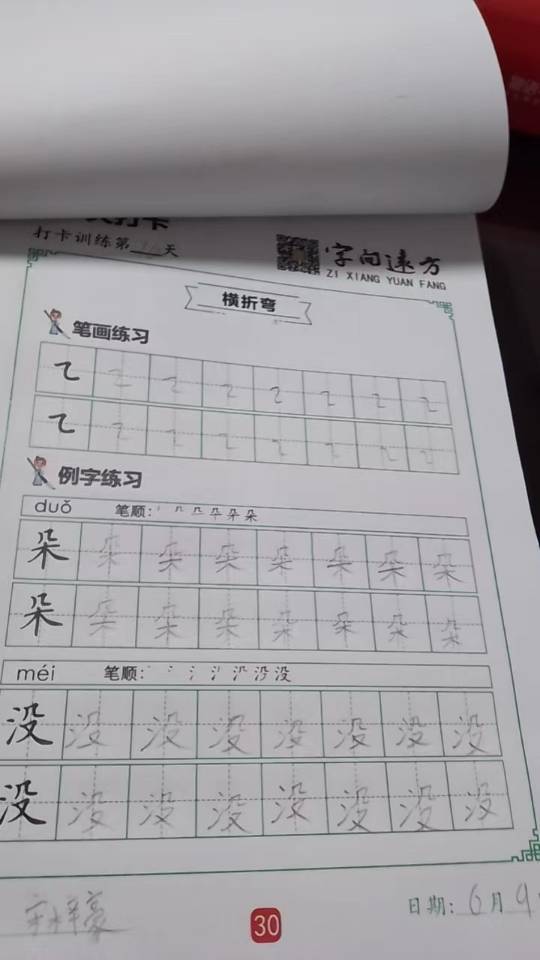 打卡训练第 天
字向远方
ZI XIANG YUAN FANG
横折弯
笔画练习
例字练习
duǒ 笔顺:
朵 朵 朵 朵 朵 朵 朵 朵
朵 朵 朵 朵 朵 朵 朵 朵
méi 笔顺:
没 没 没 没 没 没 没 没
没 没 没 没 没 没 没 没
30
日期: 6月9